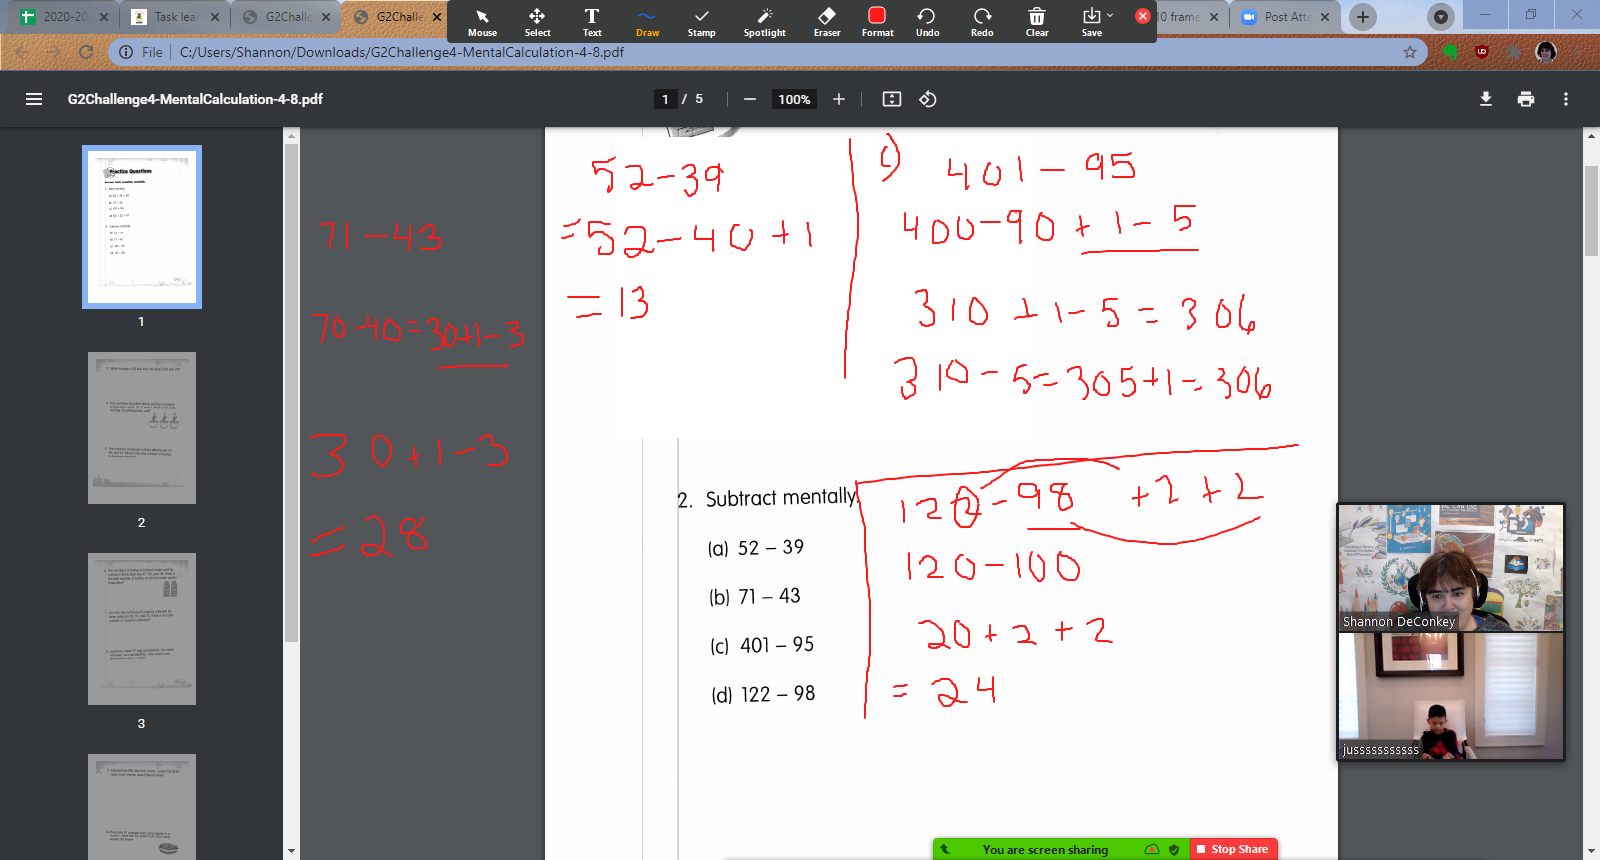 2020-20
Task lear
G2Challe
G2Challe
10 frame
Post Atte
Mouse
Select
Text
Draw
Stamp
Spotlight
Eraser
Format
Undo
Redo
Clear
Save
File
C:/Users/Shannon/Downloads/G2Challenge4-MentalCalculation-4-8.pdf
G2Challenge4-MentalCalculation-4-8.pdf
1 / 5
100%
Practice Questions
1
2
3
71 – 43
70 – 40 = 30 + 1 – 3
30 + 1 – 3
= 28
52 – 39
= 52 – 40 + 1
= 13
c) 401 – 95
400 – 90 + 1 – 5
310 + 1 – 5 = 306
310 – 5 = 305 + 1 = 306
2. Subtract mentally.
(a) 52 – 39
(b) 71 – 43
(c) 401 – 95
(d) 122 – 98
122 – 98 + 2 + 2
120 – 100
20 + 2 + 2
= 24
Shannon DeConkey
jusssssssssss
You are screen sharing
Stop Share